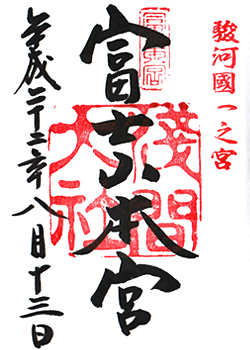 駿河國一之宮
富士山本宮
淺間大社
平成二十二年八月十三日